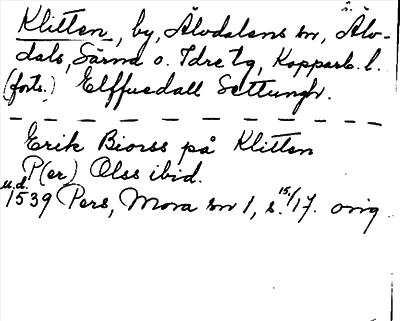 Klitten, by, Älvdalens sn, Älv-
dals, Särna o. Idre tg, Kopparb. l.
(forts.) Elffuedall Settungh.
Erik Biorss på Klitten
P(er) Olss ibid.
u.d. 1539 Pers, Mora sn 1, s. 15/17. orig